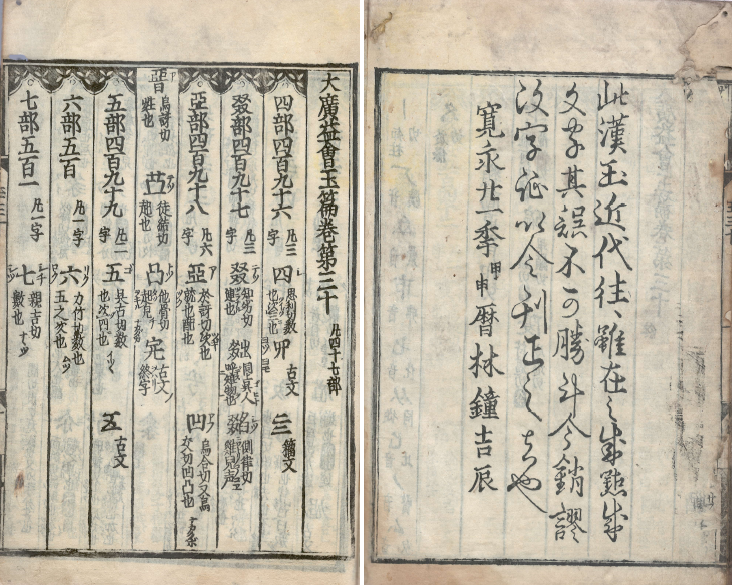 此漢玉近代往〻雖在之或點或
文字其誤不可勝計今銷謬
改字証以令刊正之者也
寛永廿一季甲申暦林鐘吉辰
大廣益會玉篇卷第三十 凡四十七部
四部四百九十六 凡三字 四 思利切數也次三也 古文 亖 籀文
叕部四百九十七 凡三字 叕 知劣切連也
亞部四百九十八 凡六字 亞 於訝切次也就也醜也 凹 烏合切又烏交切凹凸也
烏訝切姓也 徒結切起也 凸 他骨切起皃 古文
五部四百九十九 凡二字 五 吳古切數也次四也 古文
六部五百 凡一字 六 力竹切數也五之次也
七部五百一 凡一字 七 親吉切數也